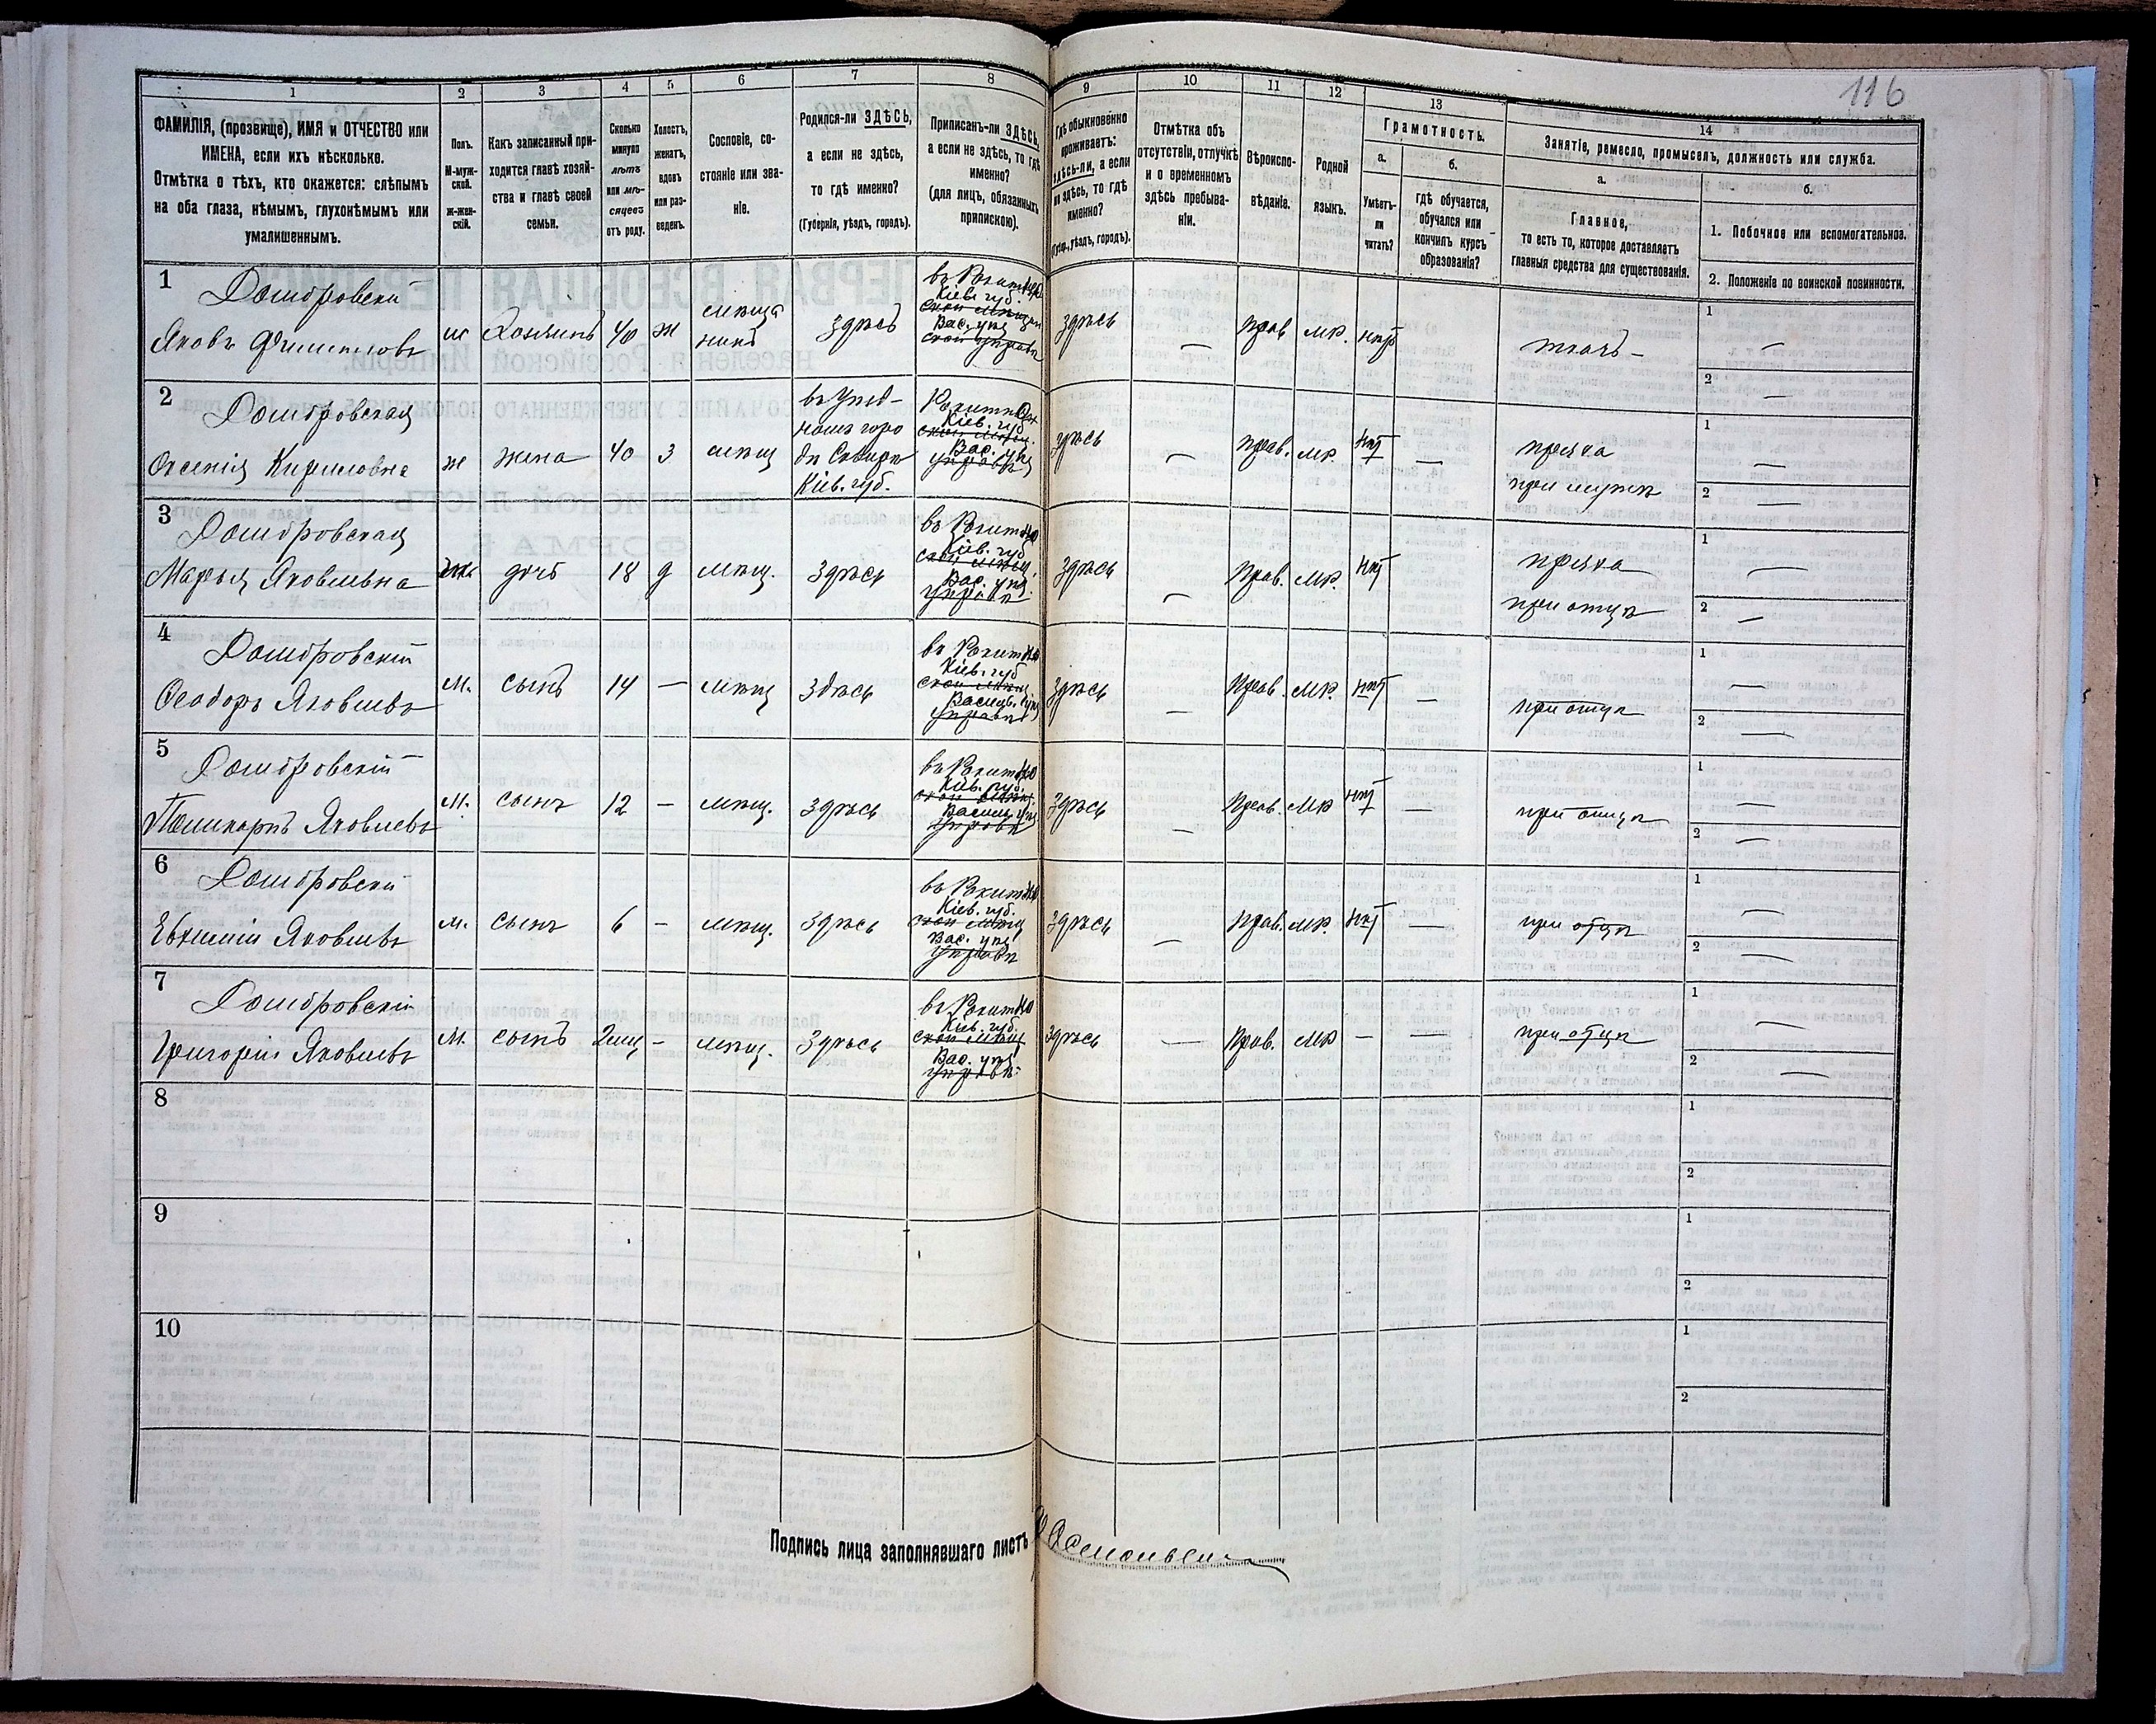 116
1 2 3 4 5 6 7 8 9 10 11 12 13 14
ФАМИЛІЯ, (прозвище), ИМЯ и ОТЧЕСТВО или
ИМЕНА, если ихъ нѣсколько.
Отмѣтка о тѣхъ, кто окажется: слѣпымъ
на оба глаза, нѣмымъ, глухонѣмымъ или
умалишеннымъ.
Полъ.
М-муж-
ской.
ж-жен-
скій.
Какъ записанный при-
ходится главѣ хозяй-
ства и главѣ своей
семьи.
Сколько
минуло
лѣтъ
или мѣ-
сяцевъ
отъ роду.
Холостъ,
женатъ,
вдовъ
или раз-
веденъ.
Сословіе, со-
стояніе или зва-
ніе.
Родился-ли ЗДѢСЬ,
а если не здѣсь,
то гдѣ именно?
(Губернія, уѣздъ, городъ).
Приписанъ-ли ЗДѢСЬ,
а если не здѣсь, то гдѣ
именно?
(для лицъ, обязанныхъ
припискою).
Гдѣ обыкновенно
проживаетъ:
здѣсь-ли, а если
не здѣсь, то гдѣ
именно?
(Губер., уѣздъ, городъ).
Отмѣтка объ
отсутствіи, отлучкѣ
и о временномъ
здѣсь пребыва-
ніи.
Вѣроиспо-
вѣданіе.
Родной
языкъ.
Грамотность.
а.
Умѣетъ-
ли
читать?
б.
гдѣ обучается,
обучался или
кончилъ курсъ
образованія?
Занятіе, ремесло, промыселъ, должность или служба.
а.
Главное,
то есть то, которое доставляетъ
главныя средства для существованія.
б.
1. Побочное или вспомогательное.
2. Положеніе по воинской повинности.
1
Домбровскій
Яковъ Филиповъ
м Хозяинъ 40 ж
мѣща
нинъ
здѣсь
въ Рокитно
Кіев. губ.
Вас. уѣз
здѣсь — прав мр. нѣтъ
ткачъ —
1 —
2 —
2
Домбровская
Оксенія Кириловна
ж жена 40 з мѣщ
въ уѣзд-
номъ горо
дѣ Сквирѣ
Кіев. губ.
Рокитно
Кіев. губ
Вас. уѣз
здѣсь — прав. мр. нѣт —
пряха
при мужѣ
1 —
2 —
3
Домбровская
Марья Яковлевна
ж дочь 18 д мѣщ. Здѣсь
въ Рокитно
Кіев. губ
Вас. уѣз.
Здѣсь — Прав. мр. нѣт
пряха
при отцѣ
1 —
2 —
4
Домбровскій
Ѳеодоръ Яковлевъ
м. сынъ 14 — мѣщ здѣсь
въ Рокитно
Кіев. губ
Васильк. уѣз
здѣсь — Прав. мр. нѣт —
при отцѣ
1 —
2 —
5
Домбровскій
Поликарпъ Яковлевъ
м. сынъ 12 — мѣщ. здѣсь
въ Рокитно
Кіев. губ.
Васильк. уѣз
здѣсь — Прав. мр нѣт —
при отцѣ
1 —
2 —
6
Домбровскій
Евхимій Яковлевъ
м. сынъ 6 — мѣщ. здѣсь
въ Рокитно
Кіев. губ.
Вас. уѣз
здѣсь — Прав. мр. нѣт —
при отцѣ
1 —
2 —
7
Домбровскій
Григорій Яковлевъ
м. сынъ 2 мѣс — мѣщ. Здѣсь
въ Рокитно
Кіев. губ.
Вас. уѣз
здѣсь — Прав. мр — —
при отцѣ
1 —
2 —
8
1
2
9
1
2
10
1
2
Подпись лица заполнявшаго листъ